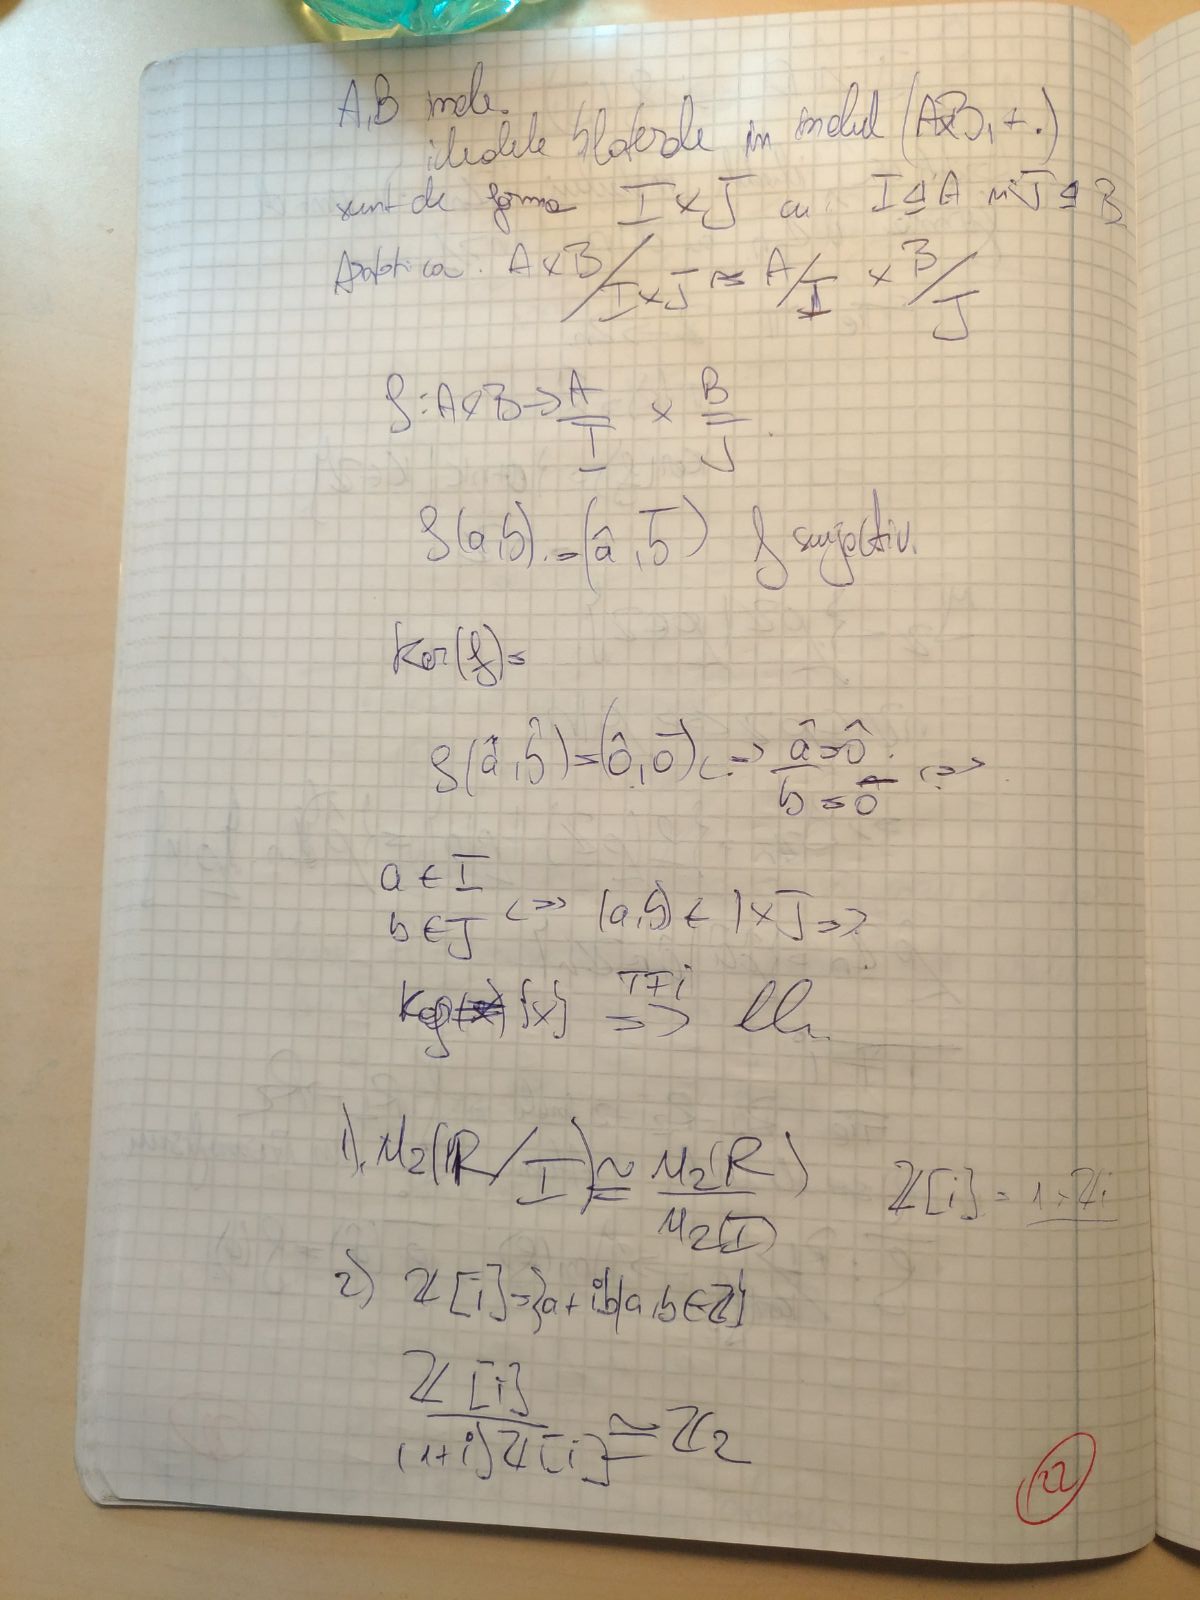 A,B inele.
idealele bilaterale in inelul (AxB, + .)
sunt de forma I x J cu I ⊴ A și J ⊴ B
A x B / I x J ≃ A/I x B/J
f: A x B → A/I x B/J
f(a,b) = (â, b̄) f surjectiv.
Ker(f) =
f(â, b̂) = (ô, ō) <=> â = ô
b̄ = ō <=>
a ∈ I
b ∈ J <=> (a,b) ∈ I x J =>
TFi
=>
1). M2(R/I) ≅ M2(R) / M2(I)
Z[i] = 1+Zi
2) Z[i] = {a + ib | a,b ∈ Z}
Z[i] / (1+i)Z[i] ≅ Z2
22